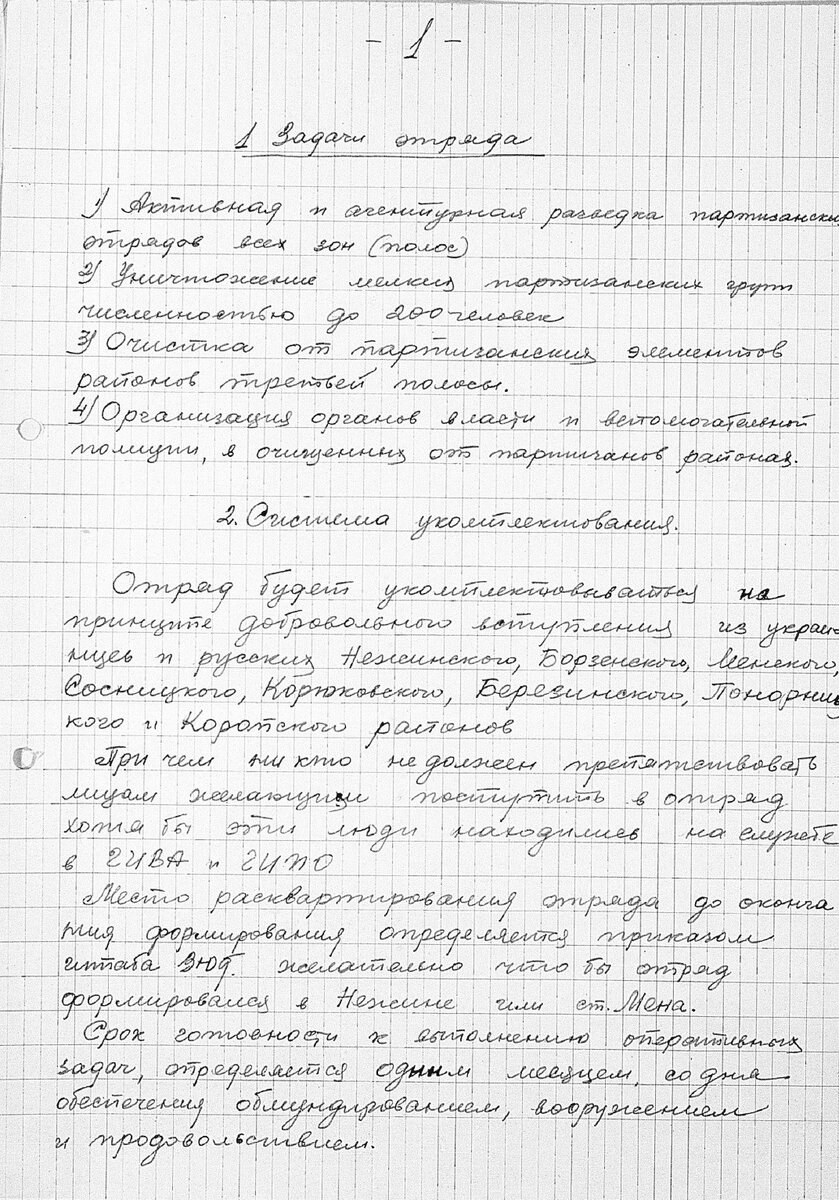 - 1 -
1 Задачи отряда
1) Активная и агентурная разведка партизанских
отрядов всех зон (полос)
2) Уничтожение мелких партизанских групп
численностью до 200 человек
3) Очистка от партизанских элементов
районов третьей полосы.
4) Организация органов власти и вспомогательной
полиции, в очищенных от партизанов районах.
2. Система укомплектования.
Отряд будет укомплектовываться на
принципе добровольного вступления из украи-
нцев и русских Нежинского, Борзенского, Менского,
Сосницкого, Корюковского, Березинского, Понорниц
кого и Коропского районов
При чем ни кто не должен препятствовать
лицам желающим поступить в отряд
хотя бы эти люди находились на службе
в ГИВА и ГИПО
Место расквартирования отряда до оконча
ния формирования определяется приказом
штаба Зюд. желательно что бы отряд
формировался в Нежине или ст. Мена.
Срок готовности к выполнению оперативных
задач, определяется одним месяцем, со дня
обеспечения обмундированием, вооружением
и продовольствием.